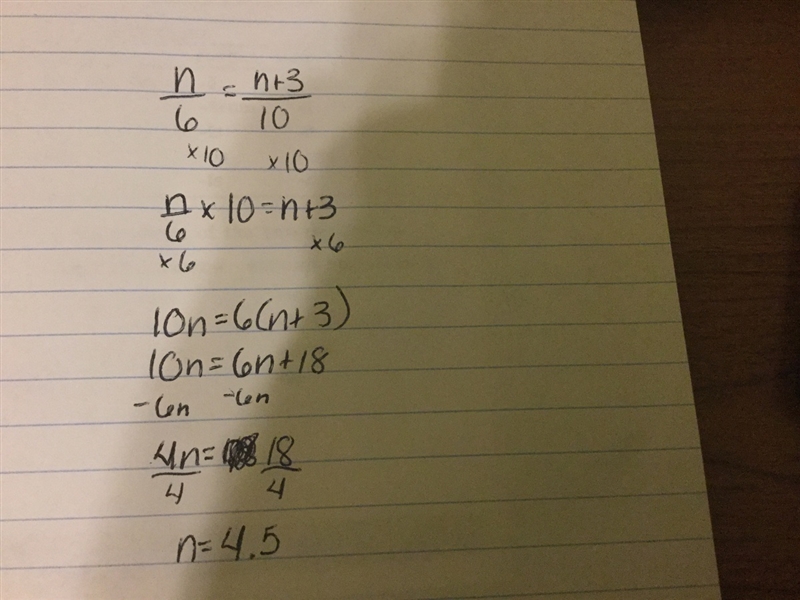 n/6 = n+3/10
×10 ×10
n/6 × 10 = n+3
×6 ×6
10n = 6(n+3)
10n = 6n+18
-6n -6n
4n/4 = 18/4
n = 4.5